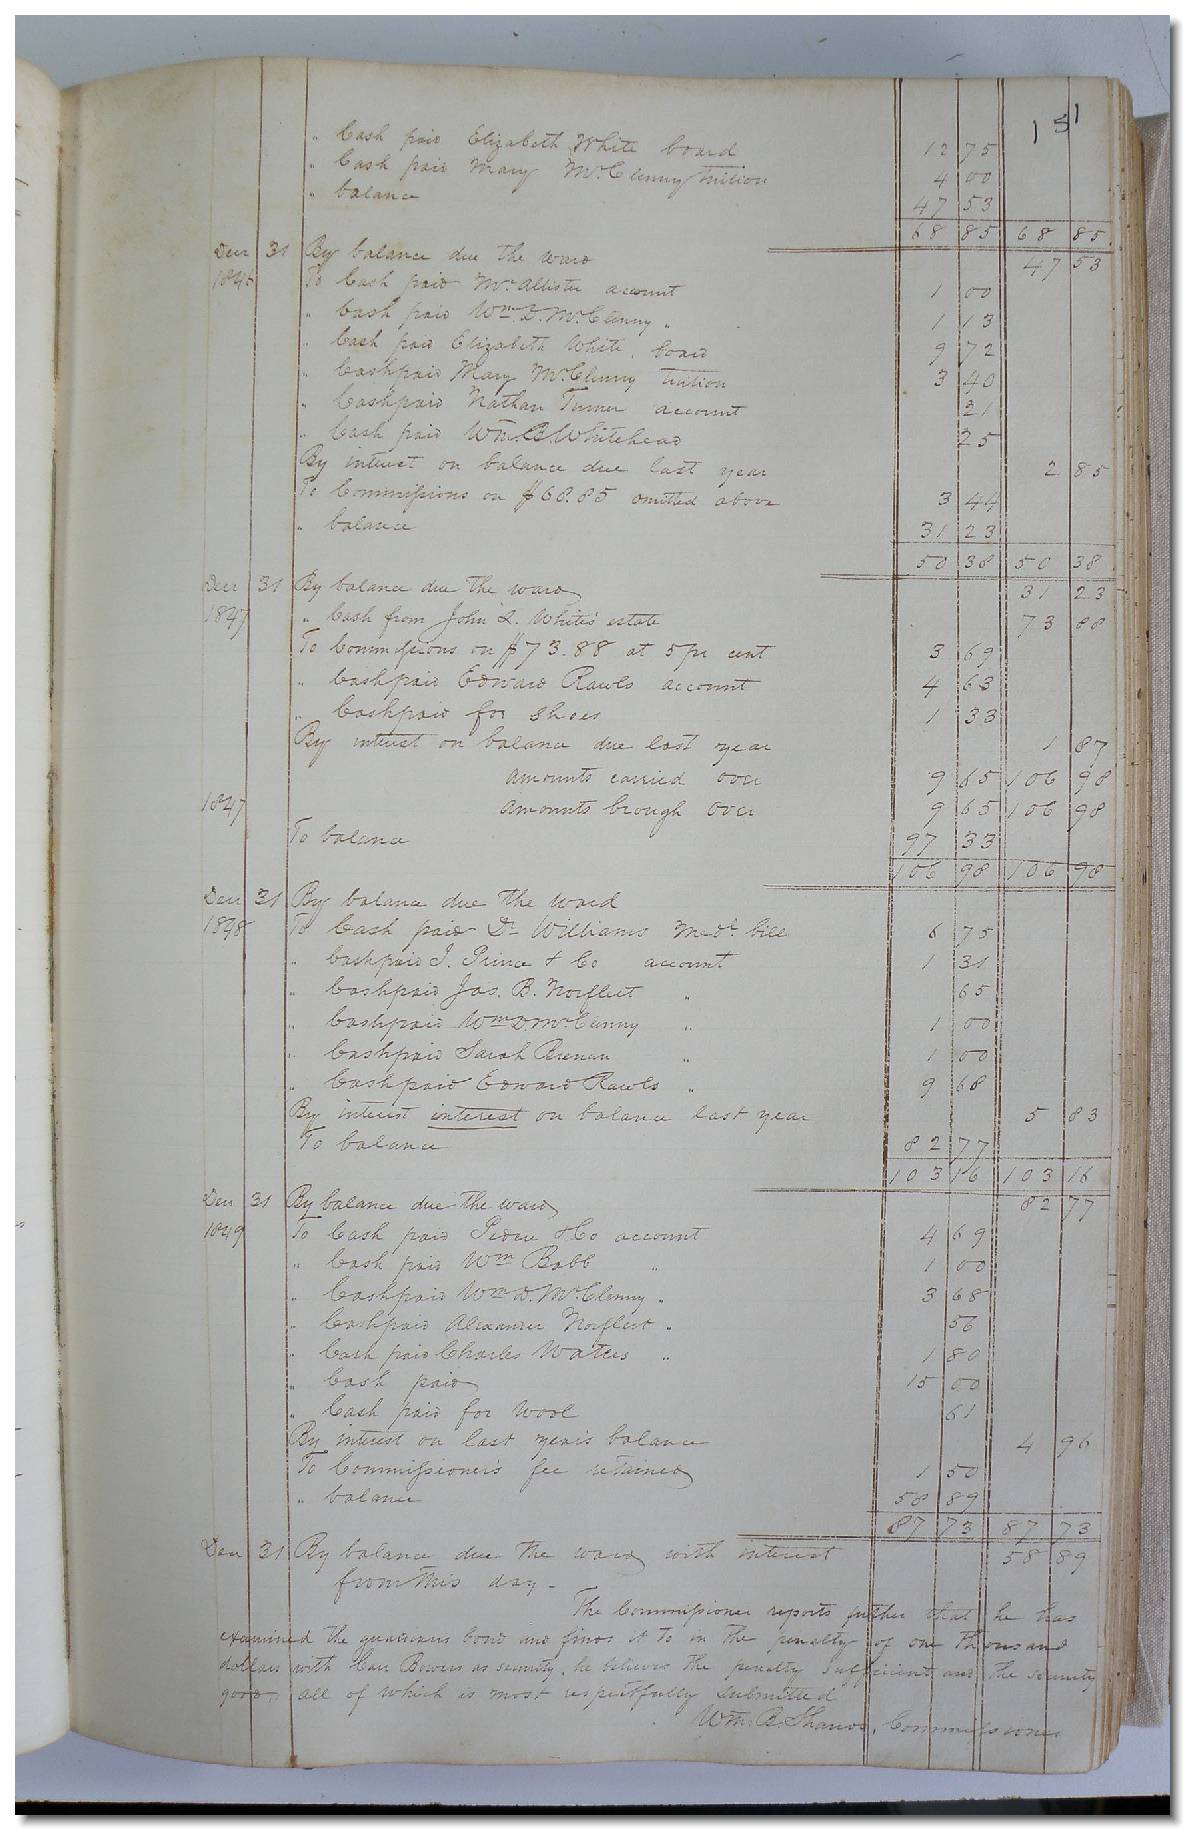 151
" Cash paid Elizabeth White board 12 75
" Cash paid Mary McClenny tuition 4 00
" balance 47 53
68 85 68 85
Decr 31 By balance due the ward 47 53
1846 To Cash paid McAllister account 1 00
" Cash paid Wm D. McClenny " 1 13
" Cash paid Elizabeth White, board 9 72
" Cash paid Mary McClenny tuition 3 40
" Cash paid Nathan Turner account 21
" Cash paid Wm B Whitehead 25
By interest on balance due last year 2 85
To Commissions on $68.85 omitted above 3 44
" balance 31 23
50 38 50 38
Decr 31 By balance due the ward 31 23
1847 " Cash from John L. White's estate 73 88
To Commissions on $73.88 at 5 pr cent 3 69
" Cash paid Edward Rawls account 4 63
" Cash paid for shoes 1 33
By interest on balance due last year 1 87
amounts carried over 9 65 106 98
1847 amounts brough over 9 65 106 98
To balance 97 33
106 98 106 98
Decr 31 By balance due the ward
1848 To Cash paid Dr Williams Medl bill 6 75
" Cash paid I. Prince & Co account 1 31
" Cash paid Jas. B. Norfleet " 65
" Cash paid Wm D McClenny " 1 00
" Cash paid Sarah " 1 00
" Cash paid Edward Rawls " 9 68
By interest interest on balance last year 5 83
To balance 82 77
103 16 103 16
Decr 31 By balance due the ward 82 77
1849 To Cash paid & Co account 4 69
" Cash paid Wm Babb " 1 00
" Cash paid Wm D. McClenny " 3 68
" Cash paid Alexander Norfleet " 56
" Cash paid Charles Waters " 1 80
" Cash paid 15 00
" Cash paid for wool 61
By interest on last year's balance 4 96
To Commissioner's fee retained 1 50
" balance 58 89
87 73 87 73
Decr 31 By balance due the ward with interest 58 89
from this day -
The Commissioner reports further that he has
examined the guardians bond and finds it to in the penalty of one thousand
dollars with Carr Bowers as security, he believes the penalty sufficient, and the security
good. all of which is most respectfully submitted
Wm. B. Shands, Commissioner